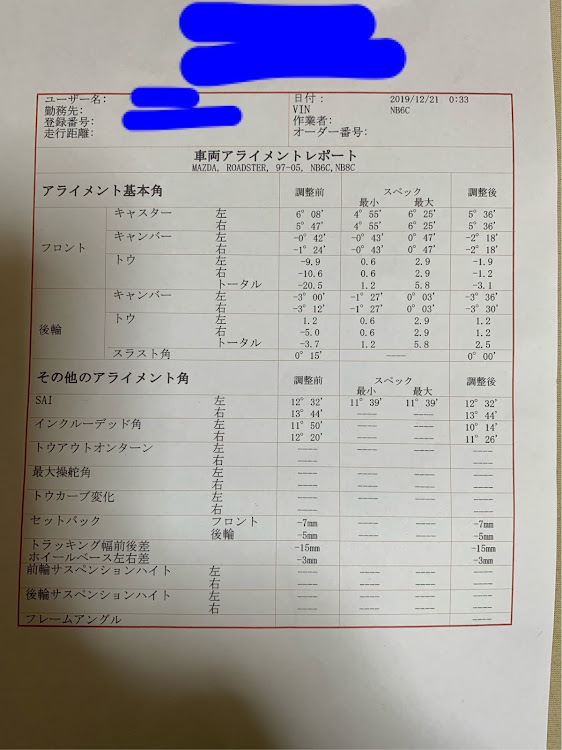 ユーザー名: 日付: 2019/12/21 0:33
勤務先: VIN NB6C
登録番号: 作業者:
走行距離: オーダー番号:
車両アライメントレポート
MAZDA, ROADSTER, 97-05, NB6C,NB8C
アライメント基本角 調整前 スペック 調整後
最小 最大
フロント キャスター 左 6° 08' 4° 55' 6° 25' 5° 36'
右 5° 47' 4° 55' 6° 25' 5° 36'
キャンバー 左 -0° 42' -0° 43' 0° 47' -2° 18'
右 -1° 24' -0° 43' 0° 47' -2° 18'
トウ 左 -9.9 0.6 2.9 -1.9
右 -10.6 0.6 2.9 -1.2
トータル -20.5 1.2 5.8 -3.1
後輪 キャンバー 左 -3° 00' -1° 27' 0° 03' -3° 36'
右 -3° 12' -1° 27' 0° 03' -3° 30'
トウ 左 1.2 0.6 2.9 1.2
右 -5.0 0.6 2.9 1.2
トータル -3.7 1.2 5.8 2.5
スラスト角 0° 15' ---- 0° 00'
その他のアライメント角 調整前 スペック 調整後
最小 最大
SAI 左 12° 32' 11° 39' 11° 39' 12° 32'
右 13° 44' ---- ---- 13° 44'
インクルーデッド角 左 11° 50' ---- ---- 10° 14'
右 12° 20' ---- ---- 11° 26'
トウアウトオンターン 左 ---- ---- ---- ----
右 ---- ---- ---- ----
最大操舵角 左 ---- ---- ---- ----
右 ---- ---- ---- ----
トウカーブ変化 左 ---- ---- ---- ----
右 ---- ---- ---- ----
セットバック フロント -7mm ---- ---- -7mm
後輪 -5mm ---- ---- -5mm
トラッキング幅前後差 -15mm ---- ---- -15mm
ホイールベース左右差 -3mm ---- ---- -3mm
前輪サスペンションハイト 左 ---- ---- ---- ----
右 ---- ---- ---- ----
後輪サスペンションハイト 左 ---- ---- ---- ----
右 ---- ---- ---- ----
フレームアングル ----